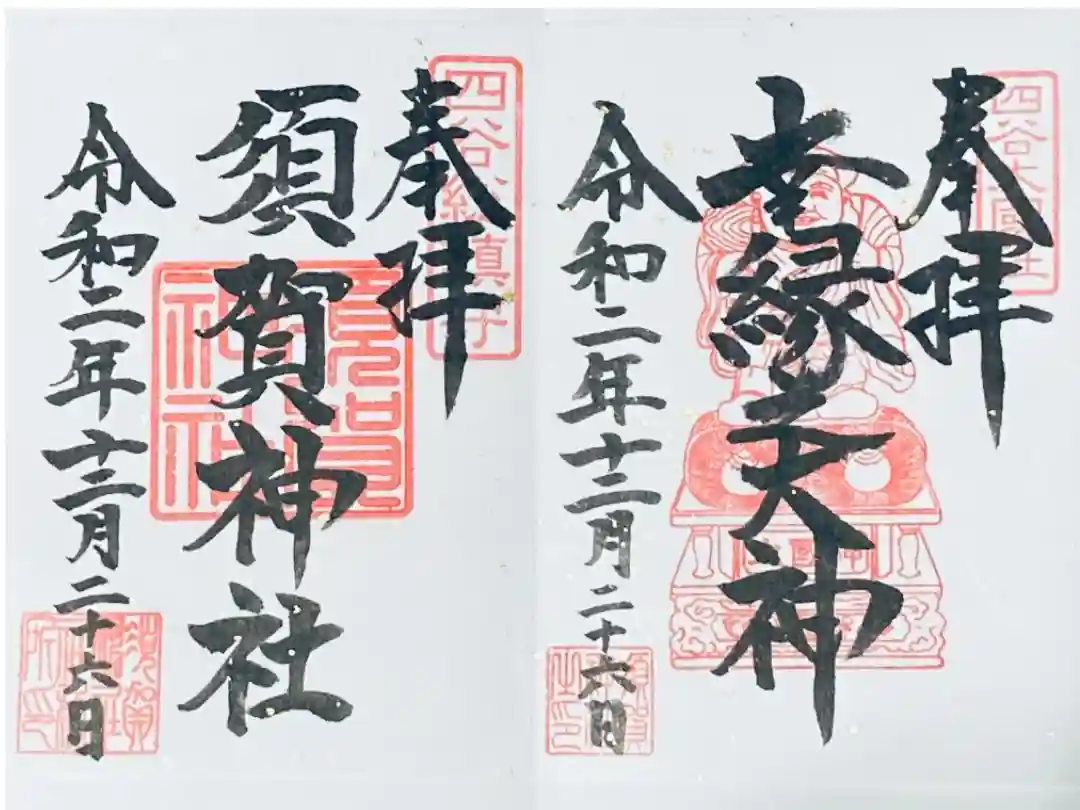 四谷大國主
奉拝
幸縁天神
令和二年十二月二十六日
四谷総鎮守
奉拝
須賀神社
令和二年十二月二十六日
須賀神社